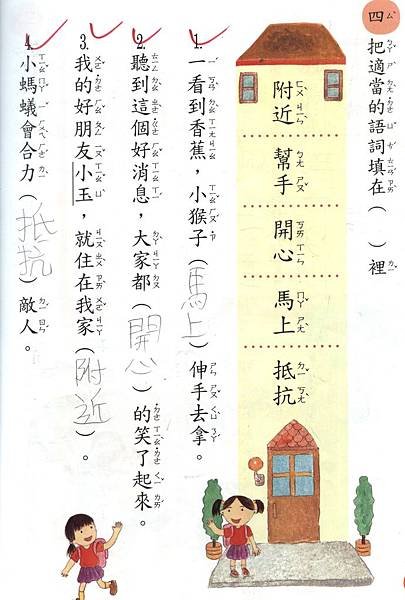 四 把適當的語詞填在( )裡
附近
幫手
開心
馬上
抵抗
1. 一看到香蕉，小猴子(馬上)伸手去拿。
2. 聽到這個好消息，大家都(開心)的笑了起來。
3. 我的好朋友小玉，就住在我家(附近)。
4. 小螞蟻會合力(抵抗)敵人。